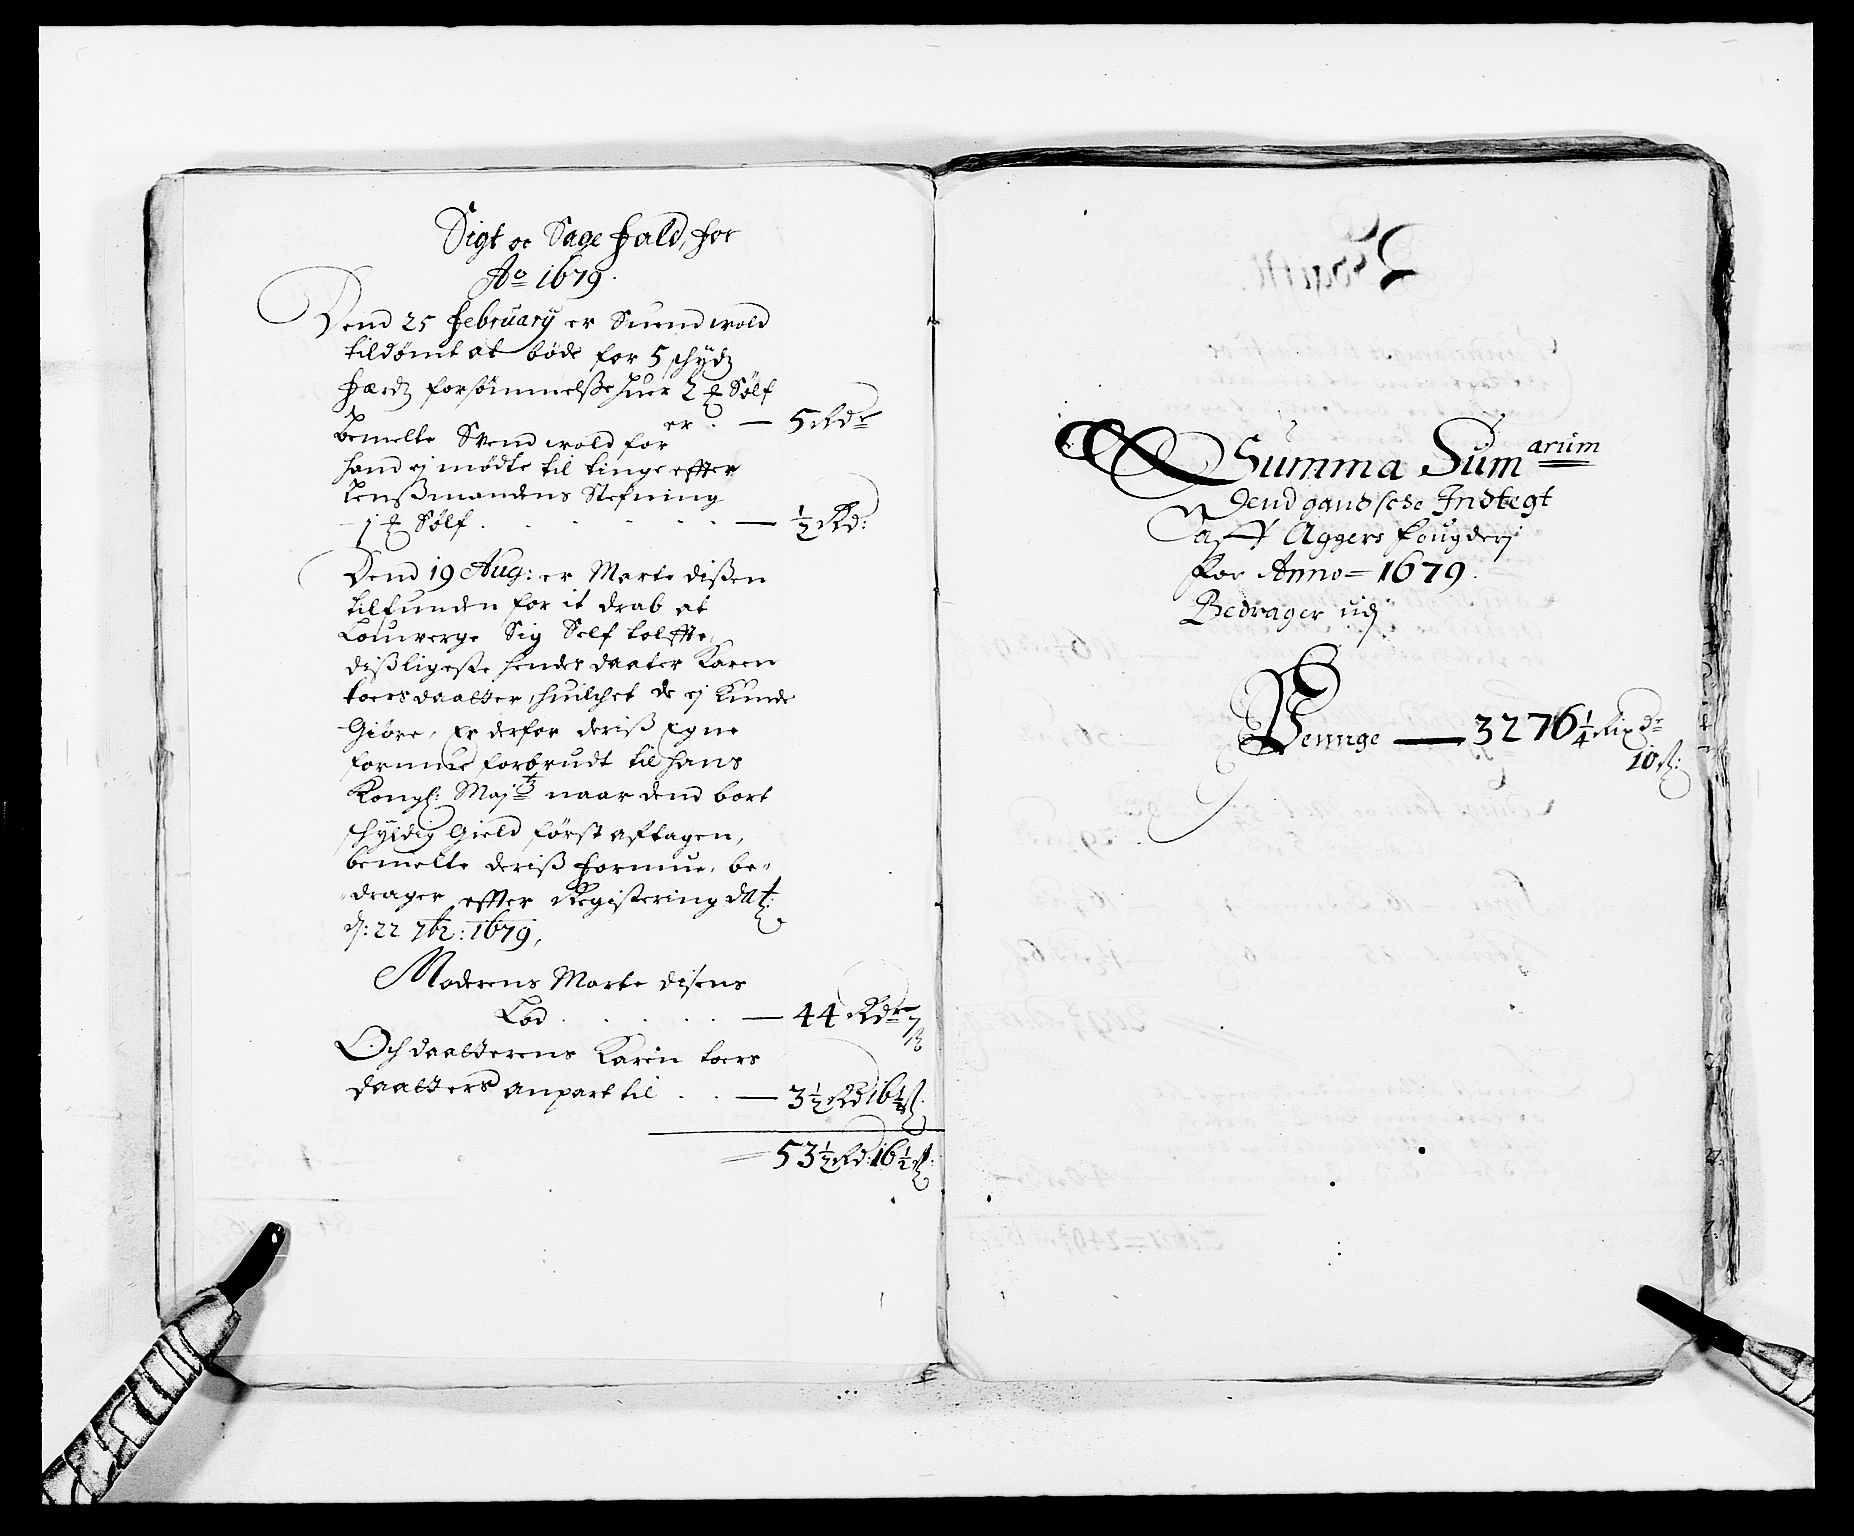 Sigt oc Sagefald, for
Ao 1679.
Dend 25 february er Suend wold
tildømt at bøde for 5 schydz
færdz forsømmelsße huer 2 ℔ Sølf
er . — 5 Rdr
bemelte Svend wold for
hand ej mødte til tinge effter
Lenßmandens Stefning
- 1 ℔ Sølf . . . . . — ½ Rd:
Dend 19 Aug: er Marte dißen
tilfunden for it drab at
Louverge Sig Self tolffte,
dißligeste hendes daater Karen
toersdaatter, huilchet de ej kunde
Giøre, Er derfor deriß Egne
formue forbrudt til hans
Kongl: Majts naar dend bort
schyldig Gield først aftagen,
bemelte deriß formue, be-
drager effter Registering dat:
d: 22 7br: 1679,
Moderens Marte disens
Lod . . . . . — 44 Rdr 7 ß
Och daatterens Karin toers
daatters anpart til . . — 3½ Rd 16½ ß
53½ Rd: 16½ ß:
Summa Sumarum
Dend gandsche Indtegt
aff Aggers fougderj
for Anno = 1679.
Bedrager udj
Penge — 3276¼ Rixdr
10 ß: